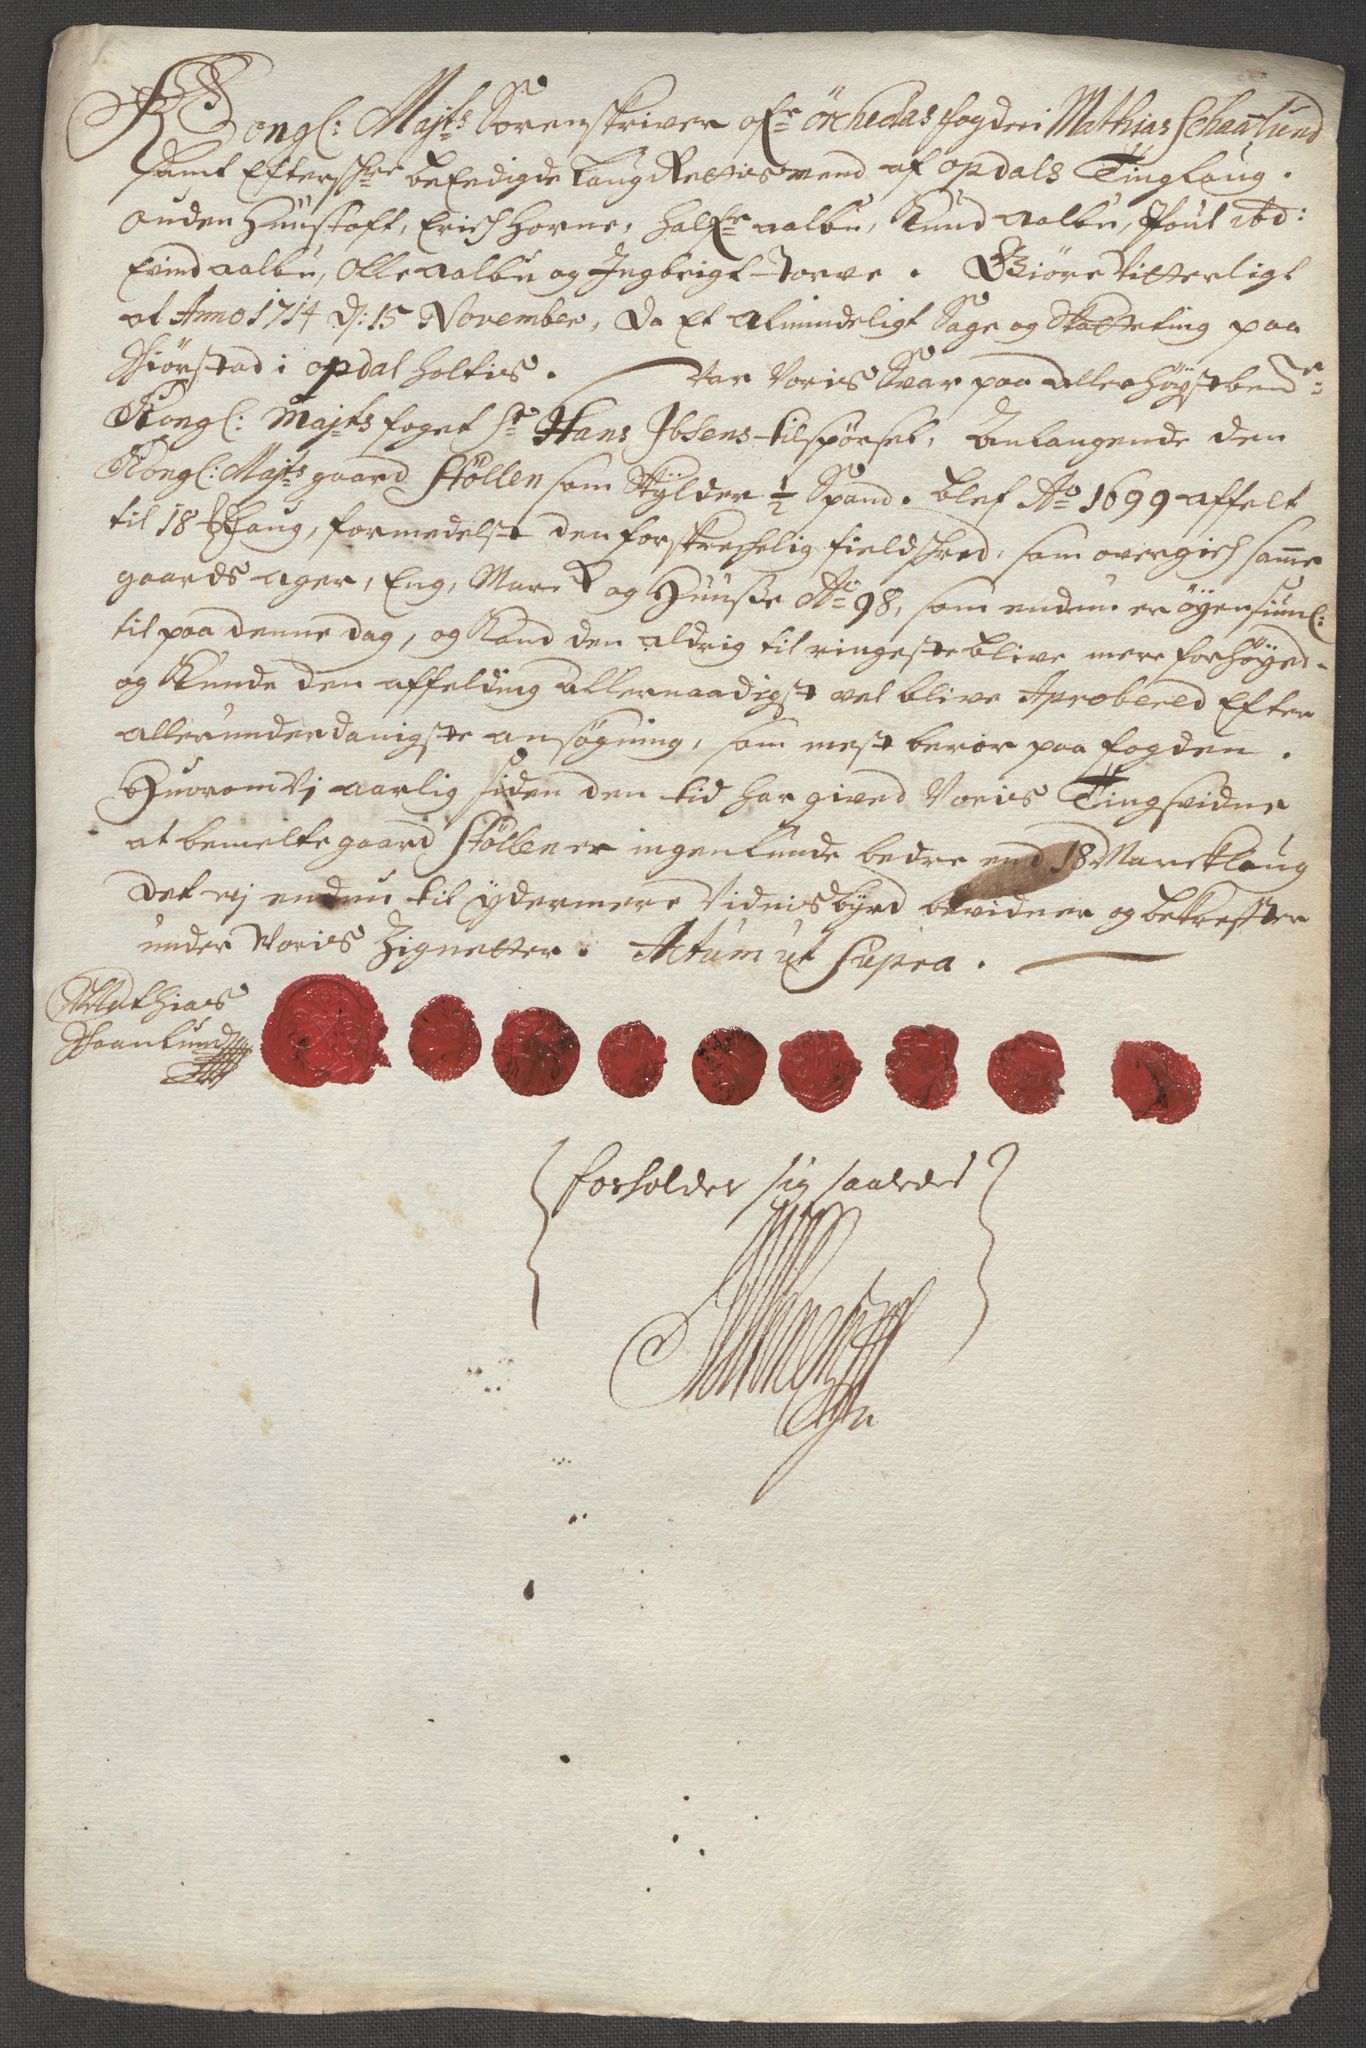 Kongl: Majts Sorenskriver ofr Örchedals fogderi Mathias Schaanlund
Samt Efterschr: beEedigde Laug Rettis mend af opdals Tinglaug.
Anden Hunstoft, Erich horne, Halfr aalbu, Knud aalbu, Poul ibd:
Evind aalbu, Olle aalbu og Ingbrigt Torve. Giöre Vitterligt
at Anno 1714 d: 15 November, da Et almindeligt Sage og Skatteting paa
i opdal holtis. Var Voris Svar paa aller höystbemte
Kongl: Majts foget Sr Hans Ibsens tilspörsel, Anlangende den
Kongl: Majts gaard Stöllen som Skylder ½ Spand. blef Ao 1699 affelt
til 18 laug, formedelst den forskrechelig fieldschred, som overgich samme
gaards ager, Eng, March og Huusse Ao 98, som endnu er öyensiunl:
til paa denne dag, og Kand den aldrig til ringeste blive mere forhöyed
og Kunde den affelding allernaadigst vel blive Aprobered Efter
allerunderdanigste ansögning, som mest beror paa fogden.
Huorom Vj aarlig siden den tid har gived Voris Tingsvidne
at bemelte gaard Stöllen er ingenlunde bedre end 18 Marcklaug
Det vj endnu til ydermere Vidnisbyrd bevidner og bekreffter
under Voris Zignetter. Actum ut Supra.
Mathias
Schaanlund
forholder sig saaledes